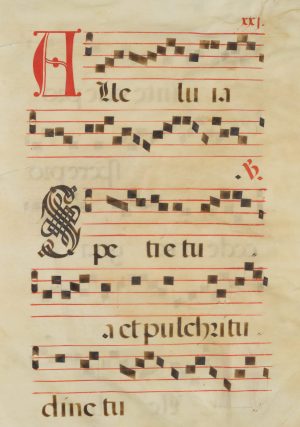 xxj.
Alle lu ia
℣.
Spe tie tu
a et pulchritu
dine tu